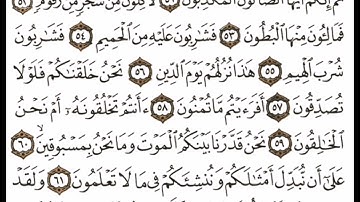 ثُمَّ إِنَّكُمْ أَيُّهَا ٱلضَّآلُّونَ ٱلْمُكَذِّبُونَ ٥١ لَءَاكِلُونَ مِن شَجَرٍ مِّن زَقُّومٍ ٥٢
فَمَالِـُٔونَ مِنْهَا ٱلْبُطُونَ ٥٣ فَشَـٰرِبُونَ عَلَيْهِ مِنَ ٱلْحَمِيمِ ٥٤ فَشَـٰرِبُونَ
شُرْبَ ٱلْهِيمِ ٥٥ هَـٰذَا نُزُلُهُمْ يَوْمَ ٱلدِّينِ ٥٦ نَحْنُ خَلَقْنَـٰكُمْ فَلَوْلَا
تُصَدِّقُونَ ٥٧ أَفَرَءَيْتُم مَّا تُمْنُونَ ٥٨ ءَأَنتُمْ تَخْلُقُونَهُۥٓ أَمْ نَحْنُ
ٱلْخَـٰلِقُونَ ٥٩ نَحْنُ قَدَّرْنَا بَيْنَكُمُ ٱلْمَوْتَ وَمَا نَحْنُ بِمَسْبُوقِينَ ٦٠
عَلَىٰٓ أَن نُّبَدِّلَ أَمْثَـٰلَكُمْ وَنُنشِئَكُمْ فِى مَا لَا تَعْلَمُونَ ٦١ وَلَقَدْ